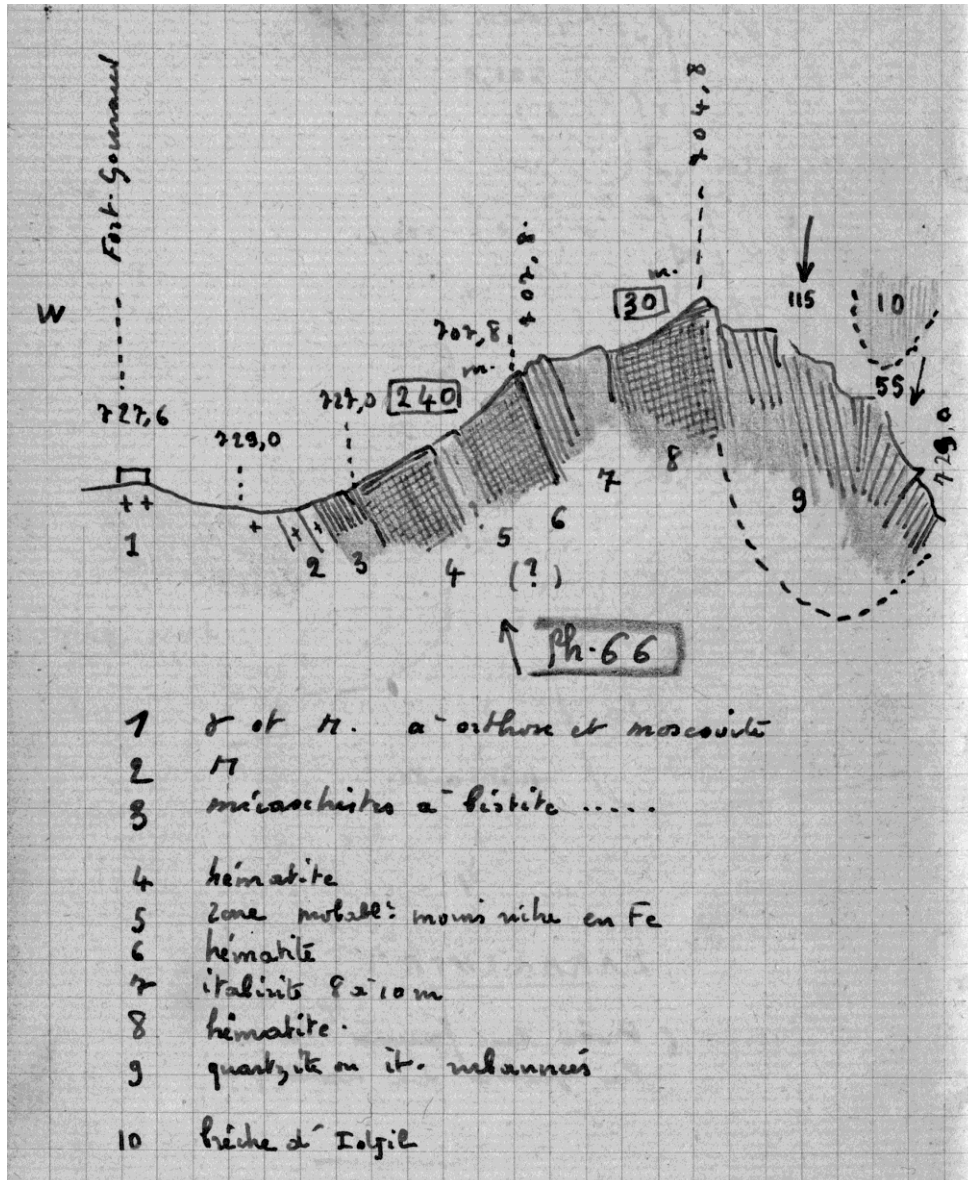 Fort-Gouraud
704,8
m.
30
115
10
W
707,8
707,8
m.
55
727,6
727,0
240
729,0
729,0
+ +
+
+ +
1
2
3
4
5
6
7
8
9
(?)
Ph. 66
1 γ et M. à orthose et moscovite
2 M
3 micaschistes à biotite .....
4 hématite
5 Zone probabl<sup>t</sup> moins riche en Fe
6 hématite
7 itabirite 8 à 10 m
8 hématite.
9 quartzite ou it. rubannées
10 brèche d'Idjil